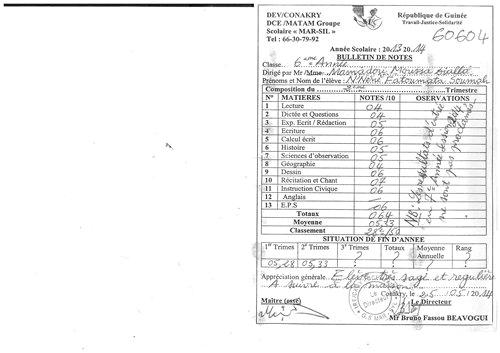 DEV/CONAKRY
DCE /MATAM Groupe
Scolaire « MAR-SIL »
Tel : 66-30-79-92
République de Guinée
Travail-Justice-Solidarité
60604
Année Scolaire : 2013 2014
BULLETIN DE NOTES
Classe 6ème Année
Dirigé par Mr /Mme Mamadou Moussa Diallo
Prénoms et Nom de l'élève : N'Néné Fatoumata Soumah
Composition du 2ème Trimestre
N° MATIERES NOTES /10 OSERVATIONS
1 Lecture 04
2 Dictée et Questions 04
3 Exp. Ecrit / Rédaction 05
4 Ecriture 06
5 Calcul écrit 06
6 Histoire 05
7 Sciences d'observation 05
8 Géographie 04
9 Dessin 06
10 Récitation et Chant 07
11 Instruction Civique 06
12 Anglais -
13 E.P.S 06
NB: Les résultats d'entrée
en 7e Année
ne sont pas proclamés
Totaux 064
Moyenne 05,33
Classement 28e/60
SITUATION DE FIN D'ANNEE
1er Trimes 2è Trimes 3è Trimes Totaux Moyenne Annuelle Rang
05,28 05,33 ? ? ? ?
Appréciation générale : Elève très sage et regulière
A suivre à la maison.
Conakry, le 25 /05 /2014
Maître (esse)
Le Directeur
Le Directeur
Mr Bruno Fassou BEAVOGUI